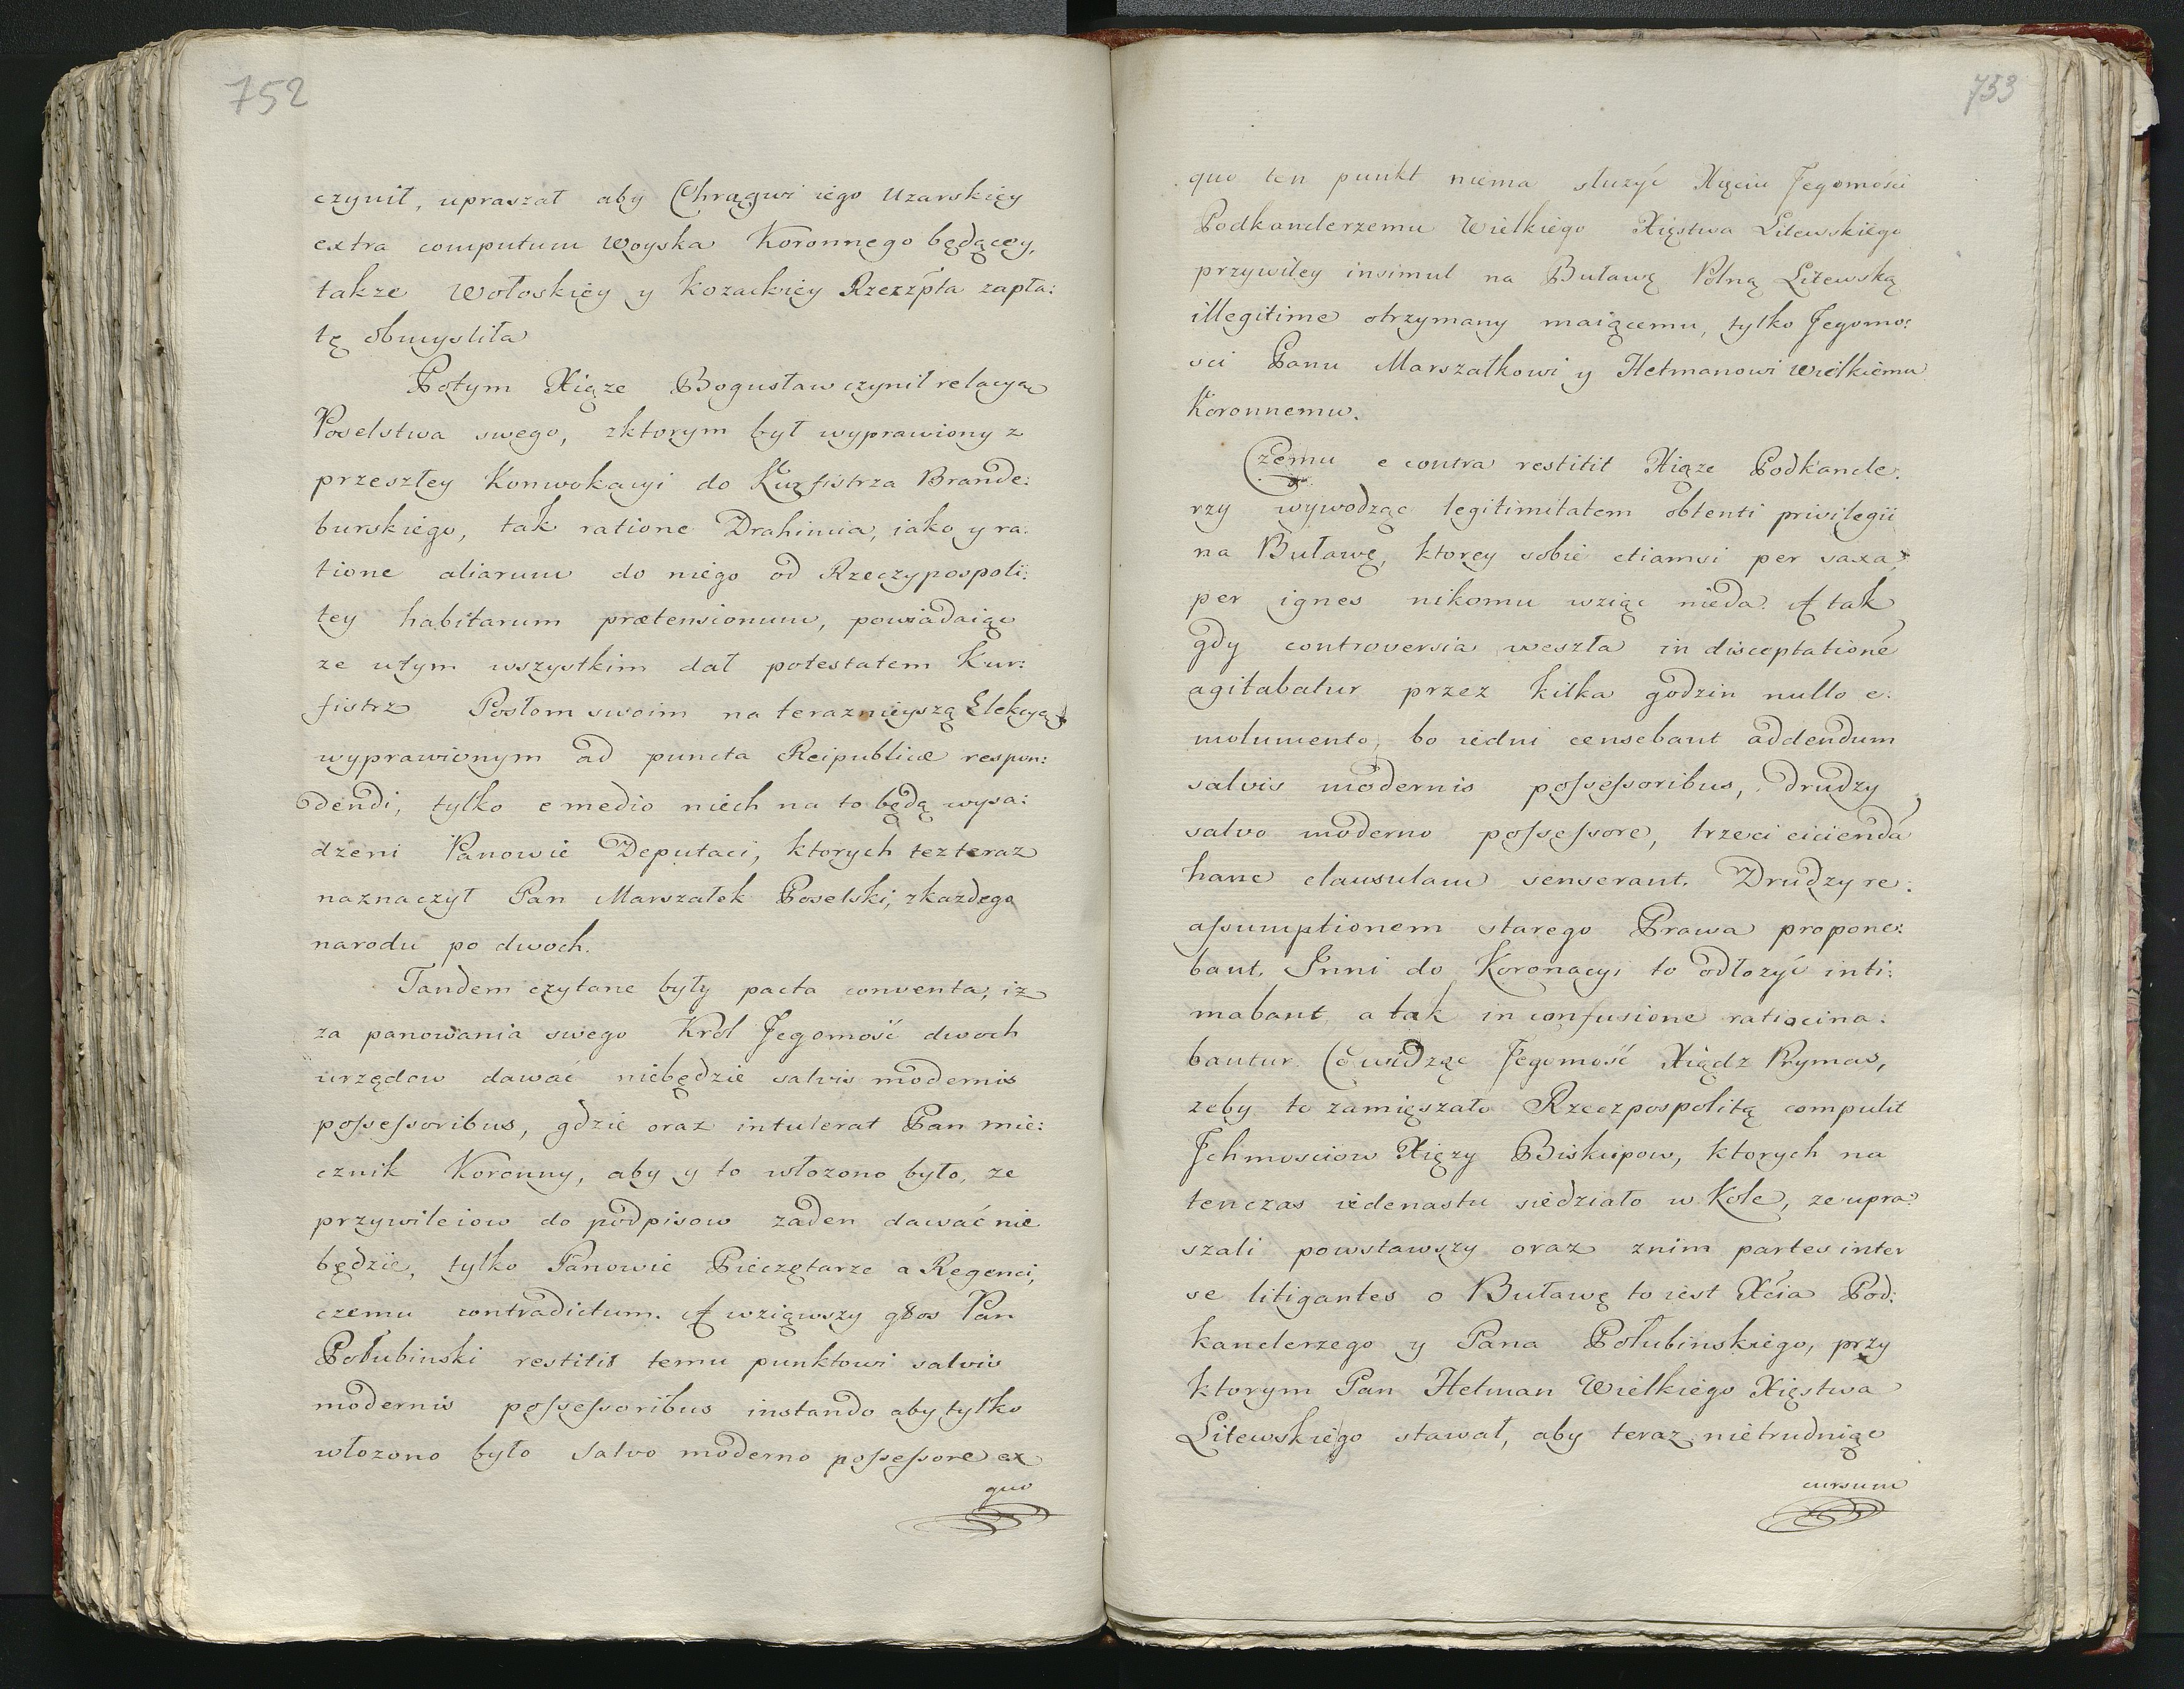 752
czynił, upraszał aby Chrągwi iego Uzarskiey
extra computum Woyska Koronnego będącey,
takze Wołoskiey y kozackiey Rzeczpta zapła:
tę obmysliła
Potym Xiąze Bogusław czynił relacyą
Poselstwa swego, zktorym był wyprawiony z
przeszłey Konwokacyi do Kurfistrza Brande:
burskiego, tak ratione Drahimia, iako y ra:
tione aliarum do niego od Rzeczypospoli:
tey habitarum prætensionum, powiadaiąc
ze wtym wszystkim dał potestatem Kur:
fistrz Posłom swoim na teraznieyszą Elekcyą
wyprawionym ad puncta Reipublicæ respon:
dendi, tylko e medio niech na to będą wysa:
dzeni Panowie Deputaci, ktorych tez teraz
naznaczył Pan Marszałek Poselski, zkazdego
narodu po dwoch.
Tandem czytane były pacta conventa, iz
za panowania swego Krol Jegomość dwoch
urzędow dawać niebędzie salvis modernis
possessoribus, gdzie oraz intulerat Pan mie:
cznik Koronny, aby y to włozono było, ze
przywileiow do podpisow zaden dawać nie
będzie, tylko Panowie Pieczętarze a Regenci,
czemu contradictum. A wziąwszy głos Pan
Połubinski restitit temu punktowi salvis
modernis possessoribus instando aby tylko
włozono było Salvo moderno possessore ex
quo
753
quo ten punkt niema służyć Xięciu Jegomości
Podkanclerzemu Wielkiego Xięstwa Litewskiego
przywiley insimul na Buławę Polną Litewską
illegitime otrzymany maiącemu, tylko Jegomo:
sci Panu Marszałkowi y Hetmanowi Wielkiemu
Koronnemu.
Czemu e contra restitit Xiąze Podkancle:
rzy wywodząc legitimitatem obtenti privilegii
na Buławę, ktorey sobie etiamsi per saxa,
per ignes nikomu wziąc nieda. A tak
gdy controversia weszła in disceptatione
agitabatur przez kilka godzin nullo e:
molumento, bo iedni censebant addendum
salvis modernis possessoribus, drudzy
salvo moderno possessore, trzeci eiiciendã
hanc clausulam senserant. Drudzy re:
assumptionem starego Prawa propone:
bant. Inni do Koronacyi to odłozyć inti:
mabant a tak in confusione ratiocina:
bantur. Co widząc Jegomość Xiądz Prymas,
zeby to zamięszało Rzeczpospolitą compulit
Jchmosciow Xięzy Biskupow, ktorych na
tenczas iedenastu siedziało w Kole, ze upra:
szali powstawszy oraz znim partes inter
se litigantes o Buławę to iest Xcia Pod:
kanclerzego y Pana Połubinskiego, przy
ktorym Pan Hetman Wielkiego Xięstwa
Litewskiego stawał, aby teraz nietrudniąc
cursum